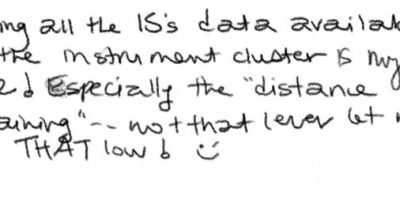 ing all the IS's data availab
the instrument cluster is my
e! Especially the "distance
aining" -- not that I ever let
THAT low! ☺